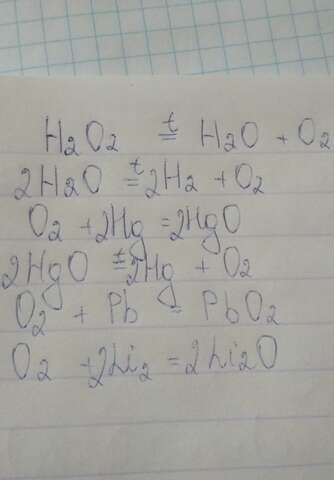 H₂O₂ t= H₂O + O₂
2H₂O t= 2H₂ + O₂
O₂ + 2Hg = 2HgO
2HgO t= 2Hg + O₂
O₂ + Pb = PbO₂
O₂ + 2Li₂ = 2Li₂O